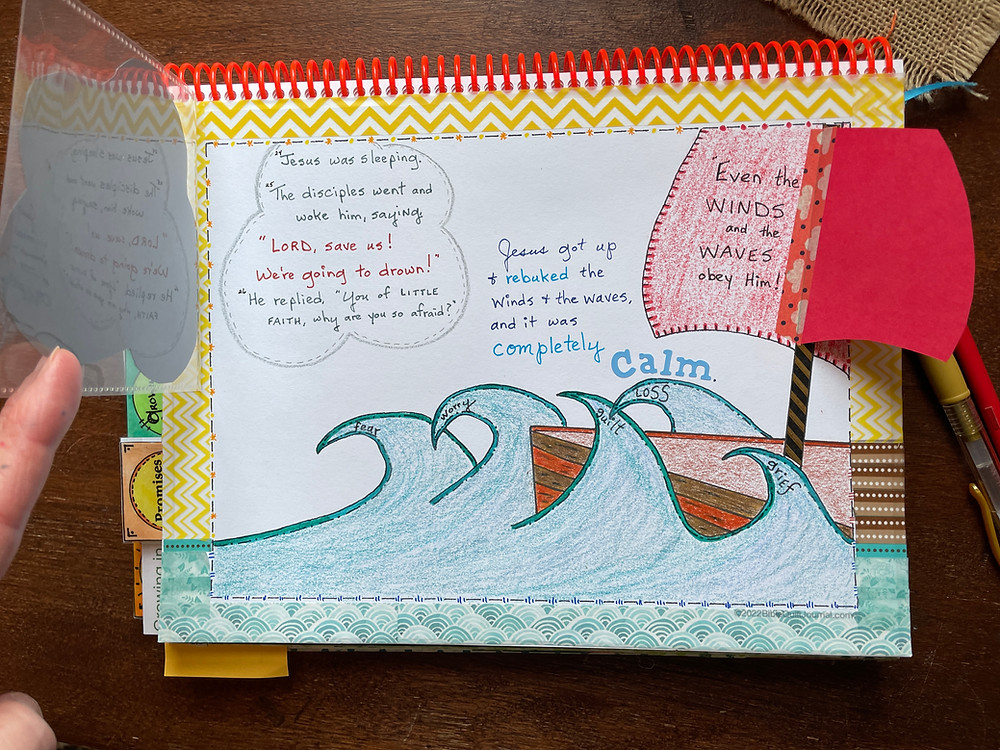 24 "Jesus was sleeping.
25 "The disciples went and
woke him, saying
"LORD, save us!
We're going to drown!"
26 "He replied, "You of LITTLE
FAITH, why are you so afraid?"
Jesus got up
+ rebuked the
winds + the waves,
and it was
completely
Calm.
"Even the
WINDS
and the
WAVES
obey Him!
fear
worry
guilt
LOSS
grief
Promises
Growing in